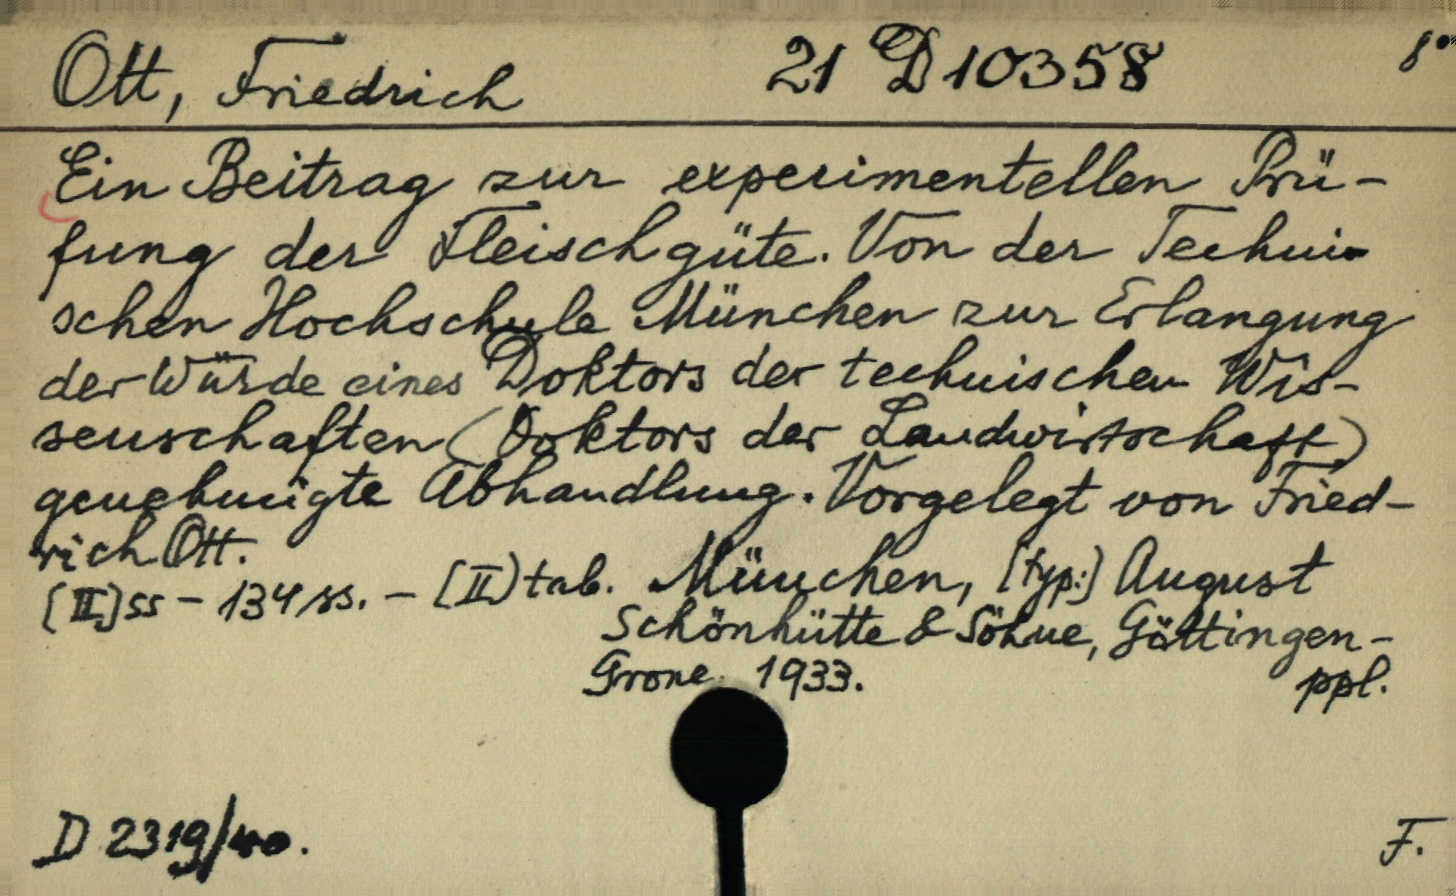 Ott, Friedrich 21 D 10358 8°
Ein Beitrag zur experimentellen Prü-
fung der Fleischgüte. Von der Techni-
schen Hochschule München zur Erlangung
der Würde eines Doktors der technischen Wis-
senschaften (Doktors der Landwirtschaft)
genehmigte Abhandlung. Vorgelegt von Fried-
rich Ott.
[II]ss - 134 ss. - [II] tab. München, [typ:] August
Schönhütte & Söhne, Göttingen-
Grone. 1933. ppl.
D 2319/40. F.